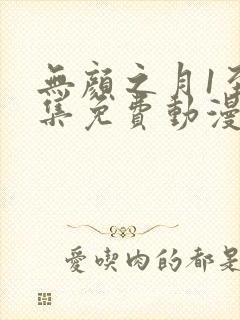 無顏之月1至
集免費動漫
愛喫肉的都是